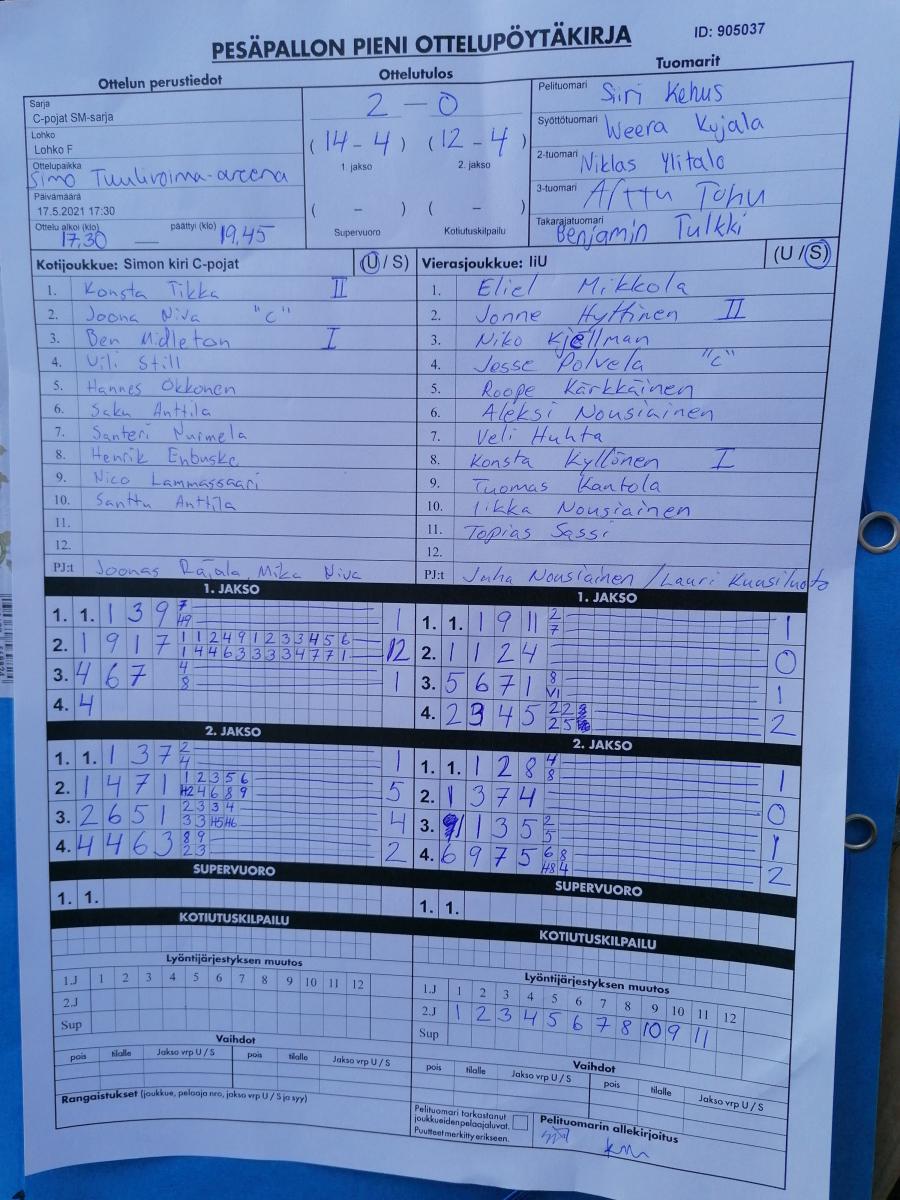 PESÄPALLON PIENI OTTELUPÖYTÄKIRJA
ID: 905037
Ottelun perustiedot
Ottelutulos
Tuomarit
Sarja
C-pojat SM-sarja
Lohko
Lohko F
Ottelupaikka
Simo Tuulivoima-areena
Päivämäärä
17.5.2021 17:30
Ottelu alkoi (klo) 17.30 — päättyi (klo) 19.45
2 - 0
(14 - 4) (12 - 4)
1. jakso 2. jakso
( - ) ( - )
Supervuoro Kotiutuskilpailu
Pelituomari Siiri Kehus
Syöttötuomari Weera Kujala
2-tuomari Niklas Ylitalo
3-tuomari Arttu Tohu
Takarajatuomari Benjamin Tulkki
Kotijoukkue: Simon kiri C-pojat (U / S)
1. Konsta Tikka II
2. Joona Niva "C"
3. Ben Midleton I
4. Vili Still
5. Hannes Okkonen
6. Saku Anttila
7. Santeri Nurmela
8. Henrik Enbuske
9. Nico Lammassaari
10. Santtu Anttila
11.
12.
PJ:t Joonas Rajala, Mika Niva
Vierasjoukkue: IiU (U / S)
1. Eliel Mikkola
2. Jonne Hyttinen II
3. Niko Kjellman
4. Jesse Polvela "C"
5. Roope Kärkkäinen
6. Aleksi Nousiainen
7. Veli Huhta
8. Konsta Kyllönen I
9. Tuomas Kantola
10. Iikka Nousiainen
11. Topias Sassi
12.
PJ:t Juha Nousiainen / Lauri Kuusiluoto
1. JAKSO
1. 1. 1 3 9 7 1
49
2. 1 9 1 7 1 1 2 4 9 1 2 3 3 4 5 6 12
1 4 4 6 3 3 3 3 4 7 7 1
3. 4 6 7 4 1
8
4. 4
1. JAKSO
1. 1. 1 9 11 2 1
7
2. 1 1 2 4 0
3. 5 6 7 1 8 1
VI
4. 2 3 4 5 2 2 2
2 5
2. JAKSO
1. 1. 1 3 7 2 1
4
2. 1 4 7 1 1 2 3 5 6 5
H2 4 6 8 9
3. 2 6 5 1 2 3 3 4 4
3 3 H5 H6
4. 4 4 6 3 8 9 2
2 3
2. JAKSO
1. 1. 1 2 8 4 1
8
2. 1 3 7 4 0
3. 1 1 3 5 2 1
5
4. 6 9 7 5 6 8 2
H8 4
SUPERVUORO
1. 1.
KOTIUTUSKILPAILU
Lyöntijärjestyksen muutos
1.J 1 2 3 4 5 6 7 8 9 10 11 12
2.J
Sup
Vaihdot
pois tilalle Jakso vrp U / S pois tilalle Jakso vrp U / S
Rangaistukset (joukkue, pelaaja nro, jakso vrp U / S ja syy)
SUPERVUORO
1. 1.
KOTIUTUSKILPAILU
Lyöntijärjestyksen muutos
1.J 1 2 3 4 5 6 7 8 9 10 11 12
2.J 1 2 3 4 5 6 7 8 10 9 11
Sup
Vaihdot
pois tilalle Jakso vrp U / S pois tilalle Jakso vrp U / S
Pelituomari tarkastanut
joukkueiden pelaajaluvat.
Puutteet merkitty erikseen.
Pelituomarin allekirjoitus